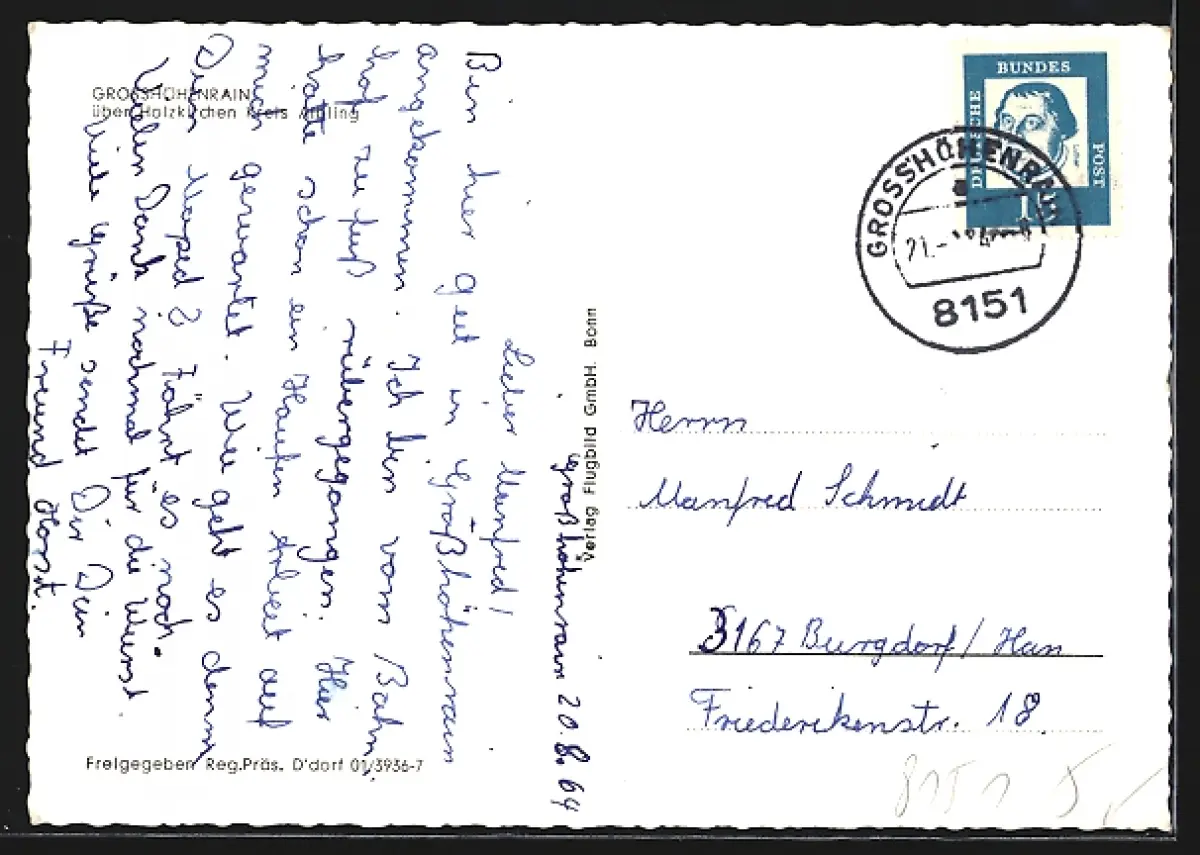 GROSSHÖHENRAIN
über Holzkirchen Kreis Aibling
Großhöhenrain 20.8.64
Lieber Manfred!
Bin hier gut in Großhöhenrain
angekommen. Ich bin vom Bahn
hof zu fuß rübergegangen. Hier
hatte schon ein Haufen Arbeit auf
mich gewartet. Wie geht es denn
Dein Moped? Fährt es noch.
Vielen Dank nochmal für die Wurst.
Viele Grüße sendet Dir Dein
Freund Horst.
Freigegeben Reg.Präs. D'dorf 01/3936-7
Verlag Flugbild GmbH. Bonn
DEUTSCHE
BUNDES
POST
GROSSHÖHENRAIN
21.-
8151
Herrn
Manfred Schmidt
3167 Burgdorf/Han
Friederikenstr. 18.
8151